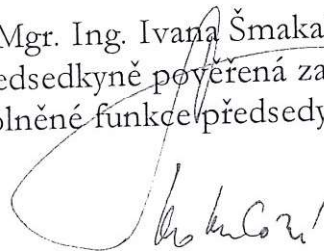 Mgr. Ing. Ivana Šmaka
edsedkyně pověřená za
olněné funkce předsedy